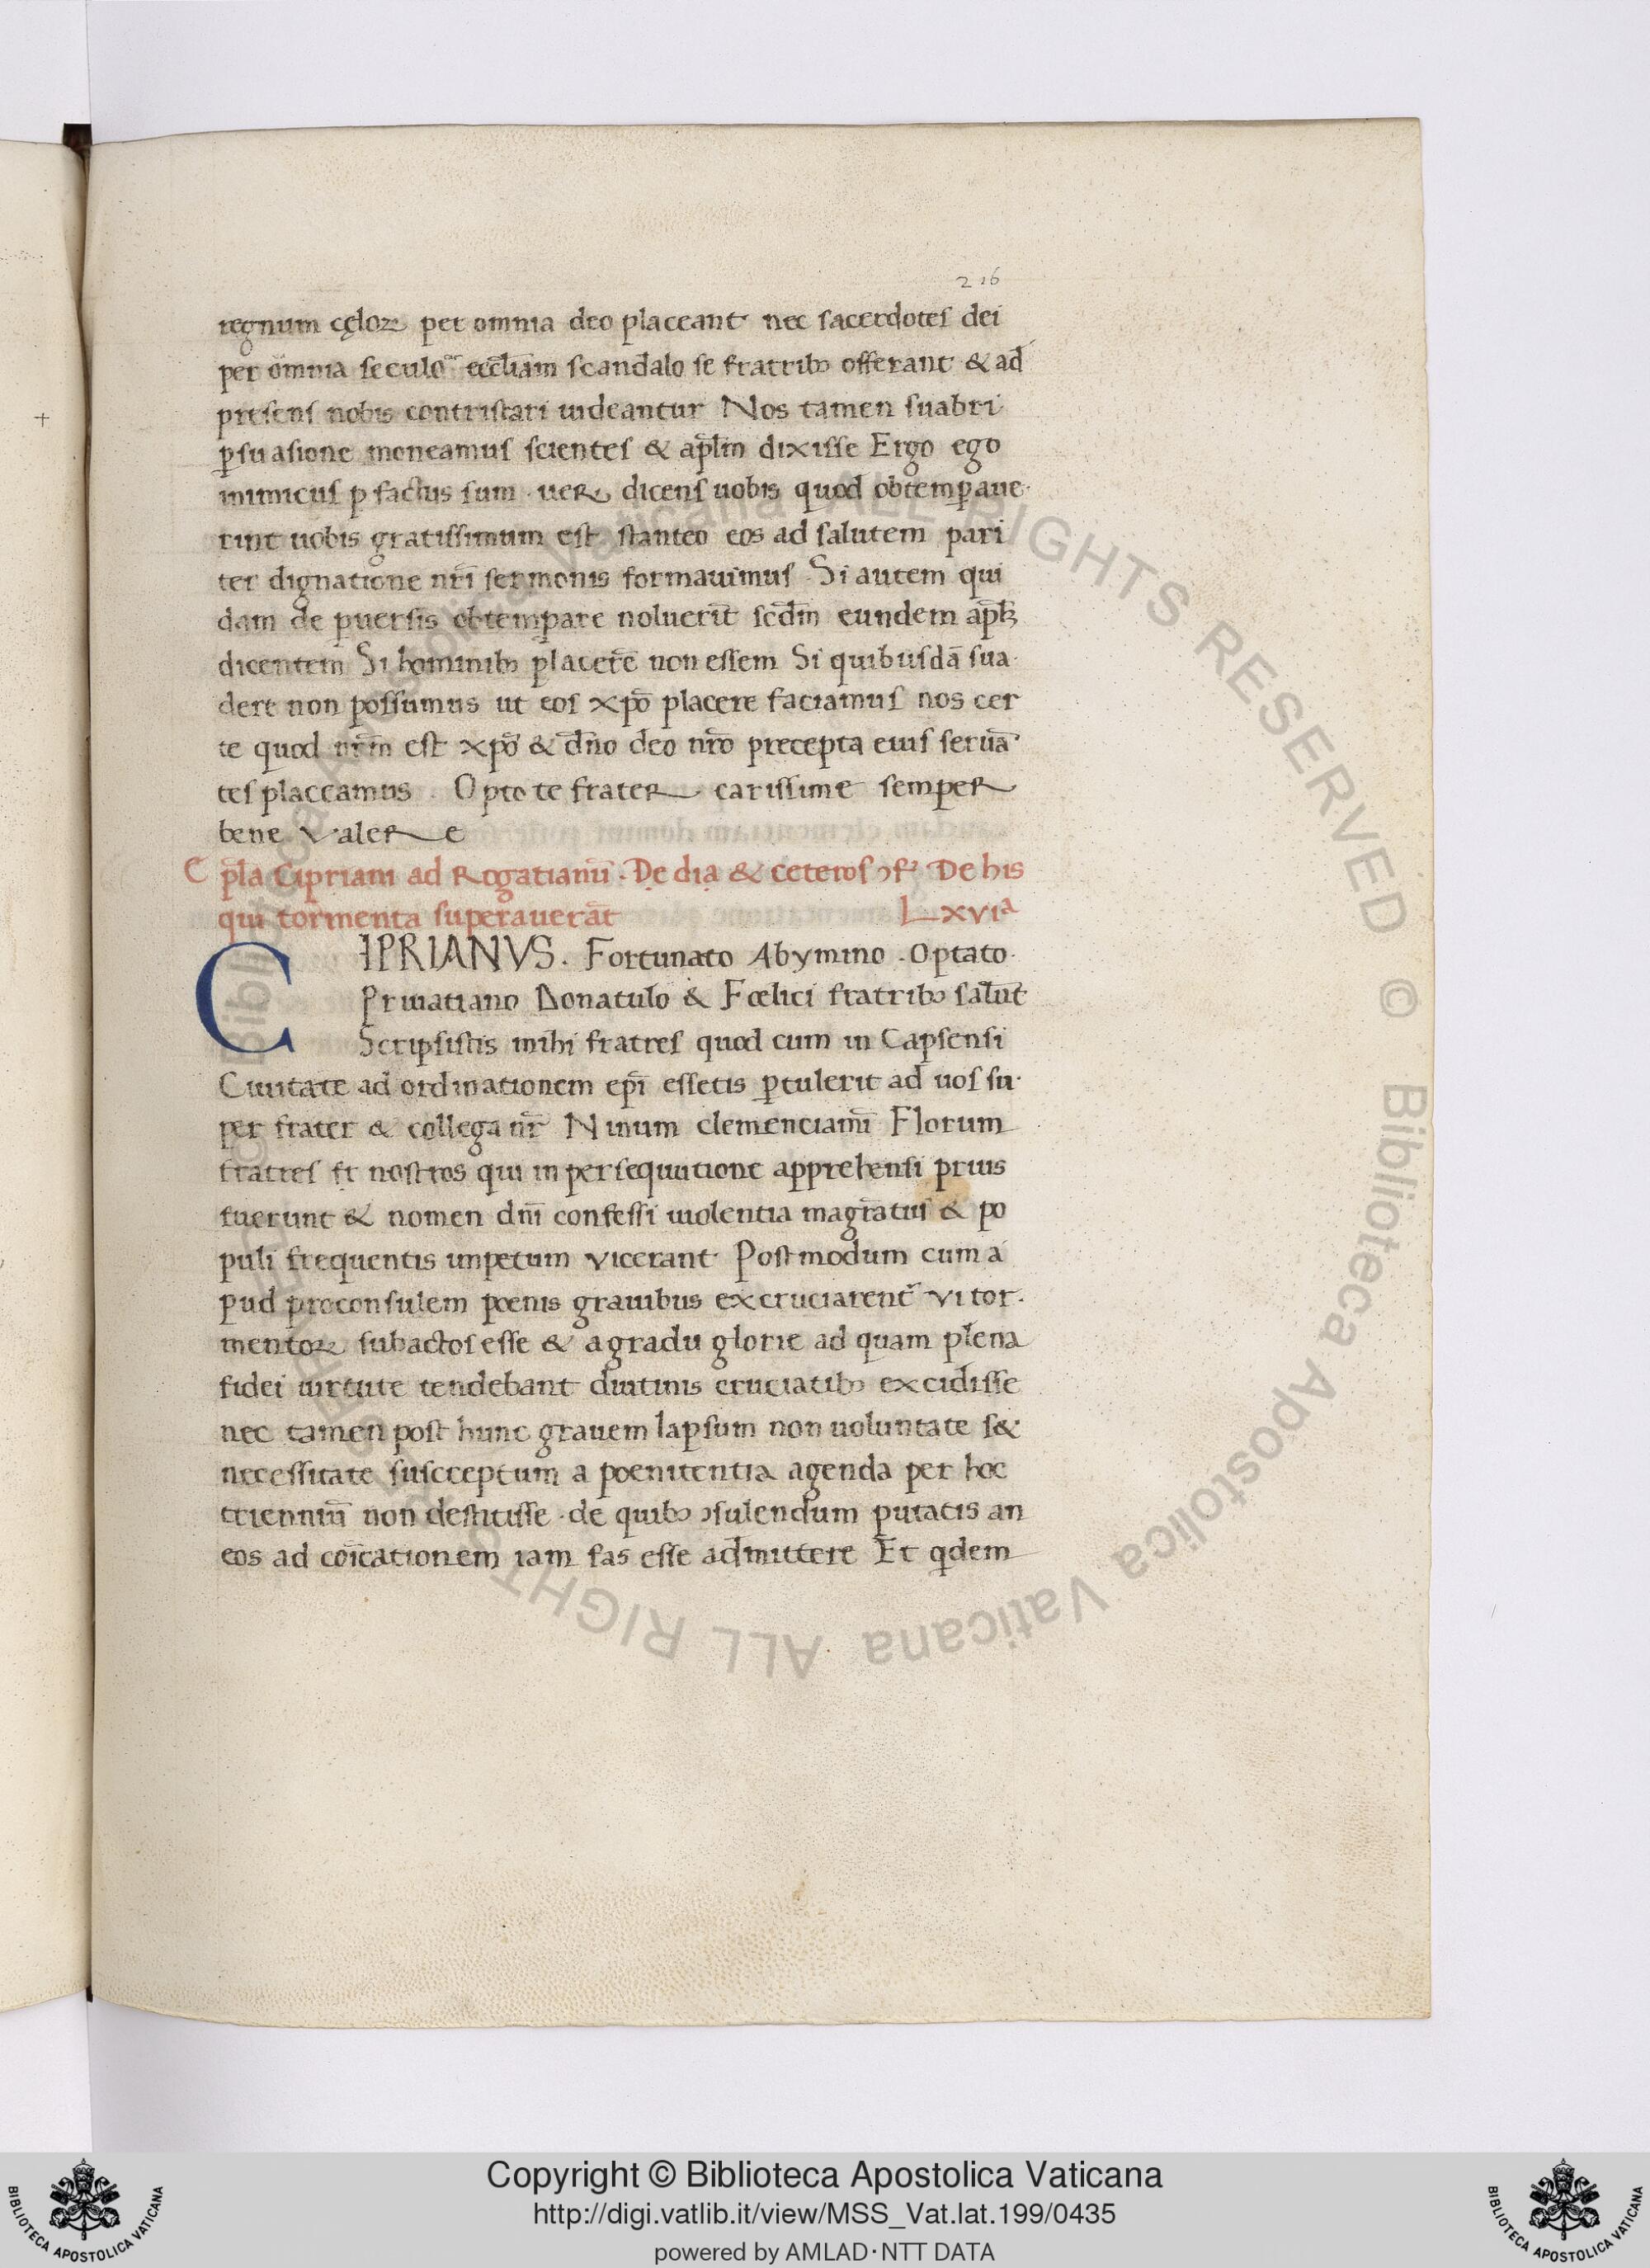 216
regnum cęloꝝ per omnia deo placeant nec sacerdotes dei
per omnia seculoar eccl̄iam scandalo se fratribꝫ offerant & ad
presens nobis contristari uideantur Nos tamen suabri
ꝑsuasione moneamus scientes & apl̄m dixisse Ergo ego
inimicus ꝑ factus sum · ueR dicens uobis quod obtemꝑaue·
rint uobis gratissimum est stanteo eos ad salutem pari
ter dignatione nr̄i sermonis formauimus · Si autem qui
dam de ꝑuersis obtemꝑare noluerīt sed̄m eundem apl̄ꝫ
dicentem Si hominibꝫ placerē non essem Si quibusdā sua·
dere non possumus ut eos xp̄o placere faciamus nos cer
te quod nr̄m est xp̄o & dn̄o deo nr̄o precepta eius seruā
tes placeamus . Opto te frateR carissime sempeR
bene ValeRe
Ep̄la Cipriani ad Rogatianū . De dia & ceteros ꝯf' De his
qui tormenta superauerāt LXVIa
CIPRIANVS . Fortunato Abymino . Optato·
Priuatiano Donatulo & Fœlici fratribꝫ salūt
Scripsistis mihi fratres quod cum in Capsensi
Ciuitate ad ordinationem ep̄i essetis ꝑtulerit ad uos su·
per frater & collega nr̄ Ninum clemenciam̄ Florum
fratres fr nostros qui in persequutione apprehensi prius
fuerunt & nomen dn̄i confessi uiolentia magr̄atus & po
puli frequentis impetum vicerant Postmodum cum a
pud proconsulem poenis grauibus excruciarent᷑ vi tor·
mentoꝝ subactos esse & a gradu glorie ad quam plena
fidei uirtute tendebant diutinis cruciatibꝫ excidisse
nec tamen post hunc grauem lapsum non uoluntate s&
necessitate susceptum a poenitentia agenda per hoc
trienniū non destitisse · de quibꝫ ꝯsulendum putatis an
eos ad cōicationem iam fas esse admittere Et qdem
Copyright © Biblioteca Apostolica Vaticana
http://digi.vatlib.it/view/MSS_Vat.lat.199/0435
powered by AMLAD·NTT DATA
BIBLIOTECA APOSTOLICA VATICANA
BIBLIOTECA APOSTOLICA VATICANA
Biblioteca Apostolica Vaticana ALL RIGHTS RESERVED © Biblioteca Apostolica Vaticana ALL RIGHTS RESERVED ©